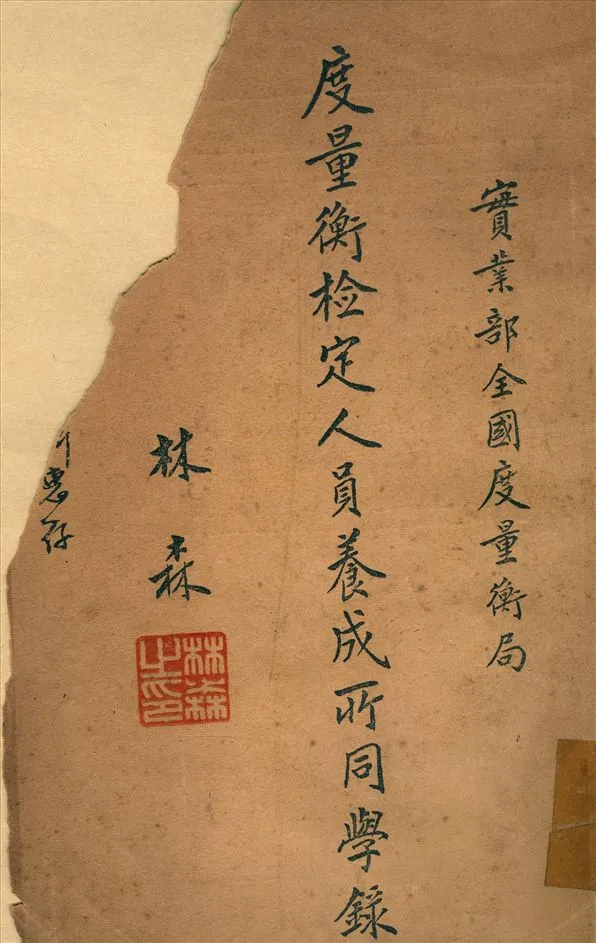 實業部全國度量衡局
度量衡检定人員養成所同學錄
林森
林森之印
惠存